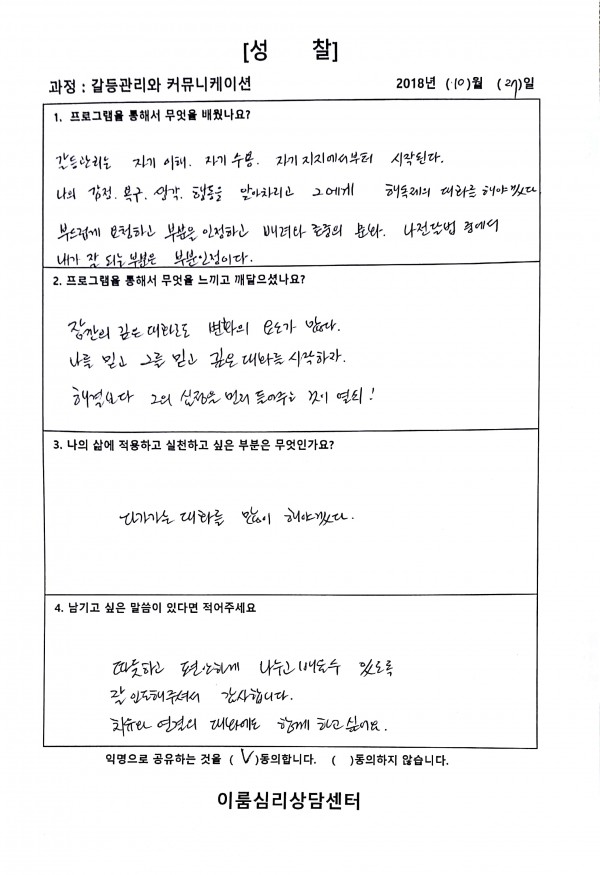 [성 찰]
과정 : 갈등관리와 커뮤니케이션 2018년 (10)월 (27)일
1. 프로그램을 통해서 무엇을 배웠나요?
갈등관리는 자기 이해. 자기 수용. 자기 지지에서부터 시작된다.
나의 감정. 욕구. 생각. 행동을 알아차리고 그에게 행동제의 대화를 해야겠다
부드럽게 요청하고 부분을 인정하고 배려와 존중의 대화. 나전달법 중에서
내가 잘 되는 부분은 부분인정이다.
2. 프로그램을 통해서 무엇을 느끼고 깨달으셨나요?
잠깐의 깊은 대화로도 변화의 요소가 많다.
나를 믿고 그를 믿고 깊은 대화를 시작하자.
해결보다 그의 심정을 먼저 들어주는 것이 열쇠!
3. 나의 삶에 적용하고 실천하고 싶은 부분은 무엇인가요?
다가가는 대화를 많이 해야겠다.
4. 남기고 싶은 말씀이 있다면 적어주세요
따뜻하고 편안하게 나누고 배울수 있도록
잘 인도해주셔서 감사합니다.
치유와 연결의 대화에도 함께 하고싶어요.
익명으로 공유하는 것을 (V)동의합니다. ( )동의하지 않습니다.
이룸심리상담센터